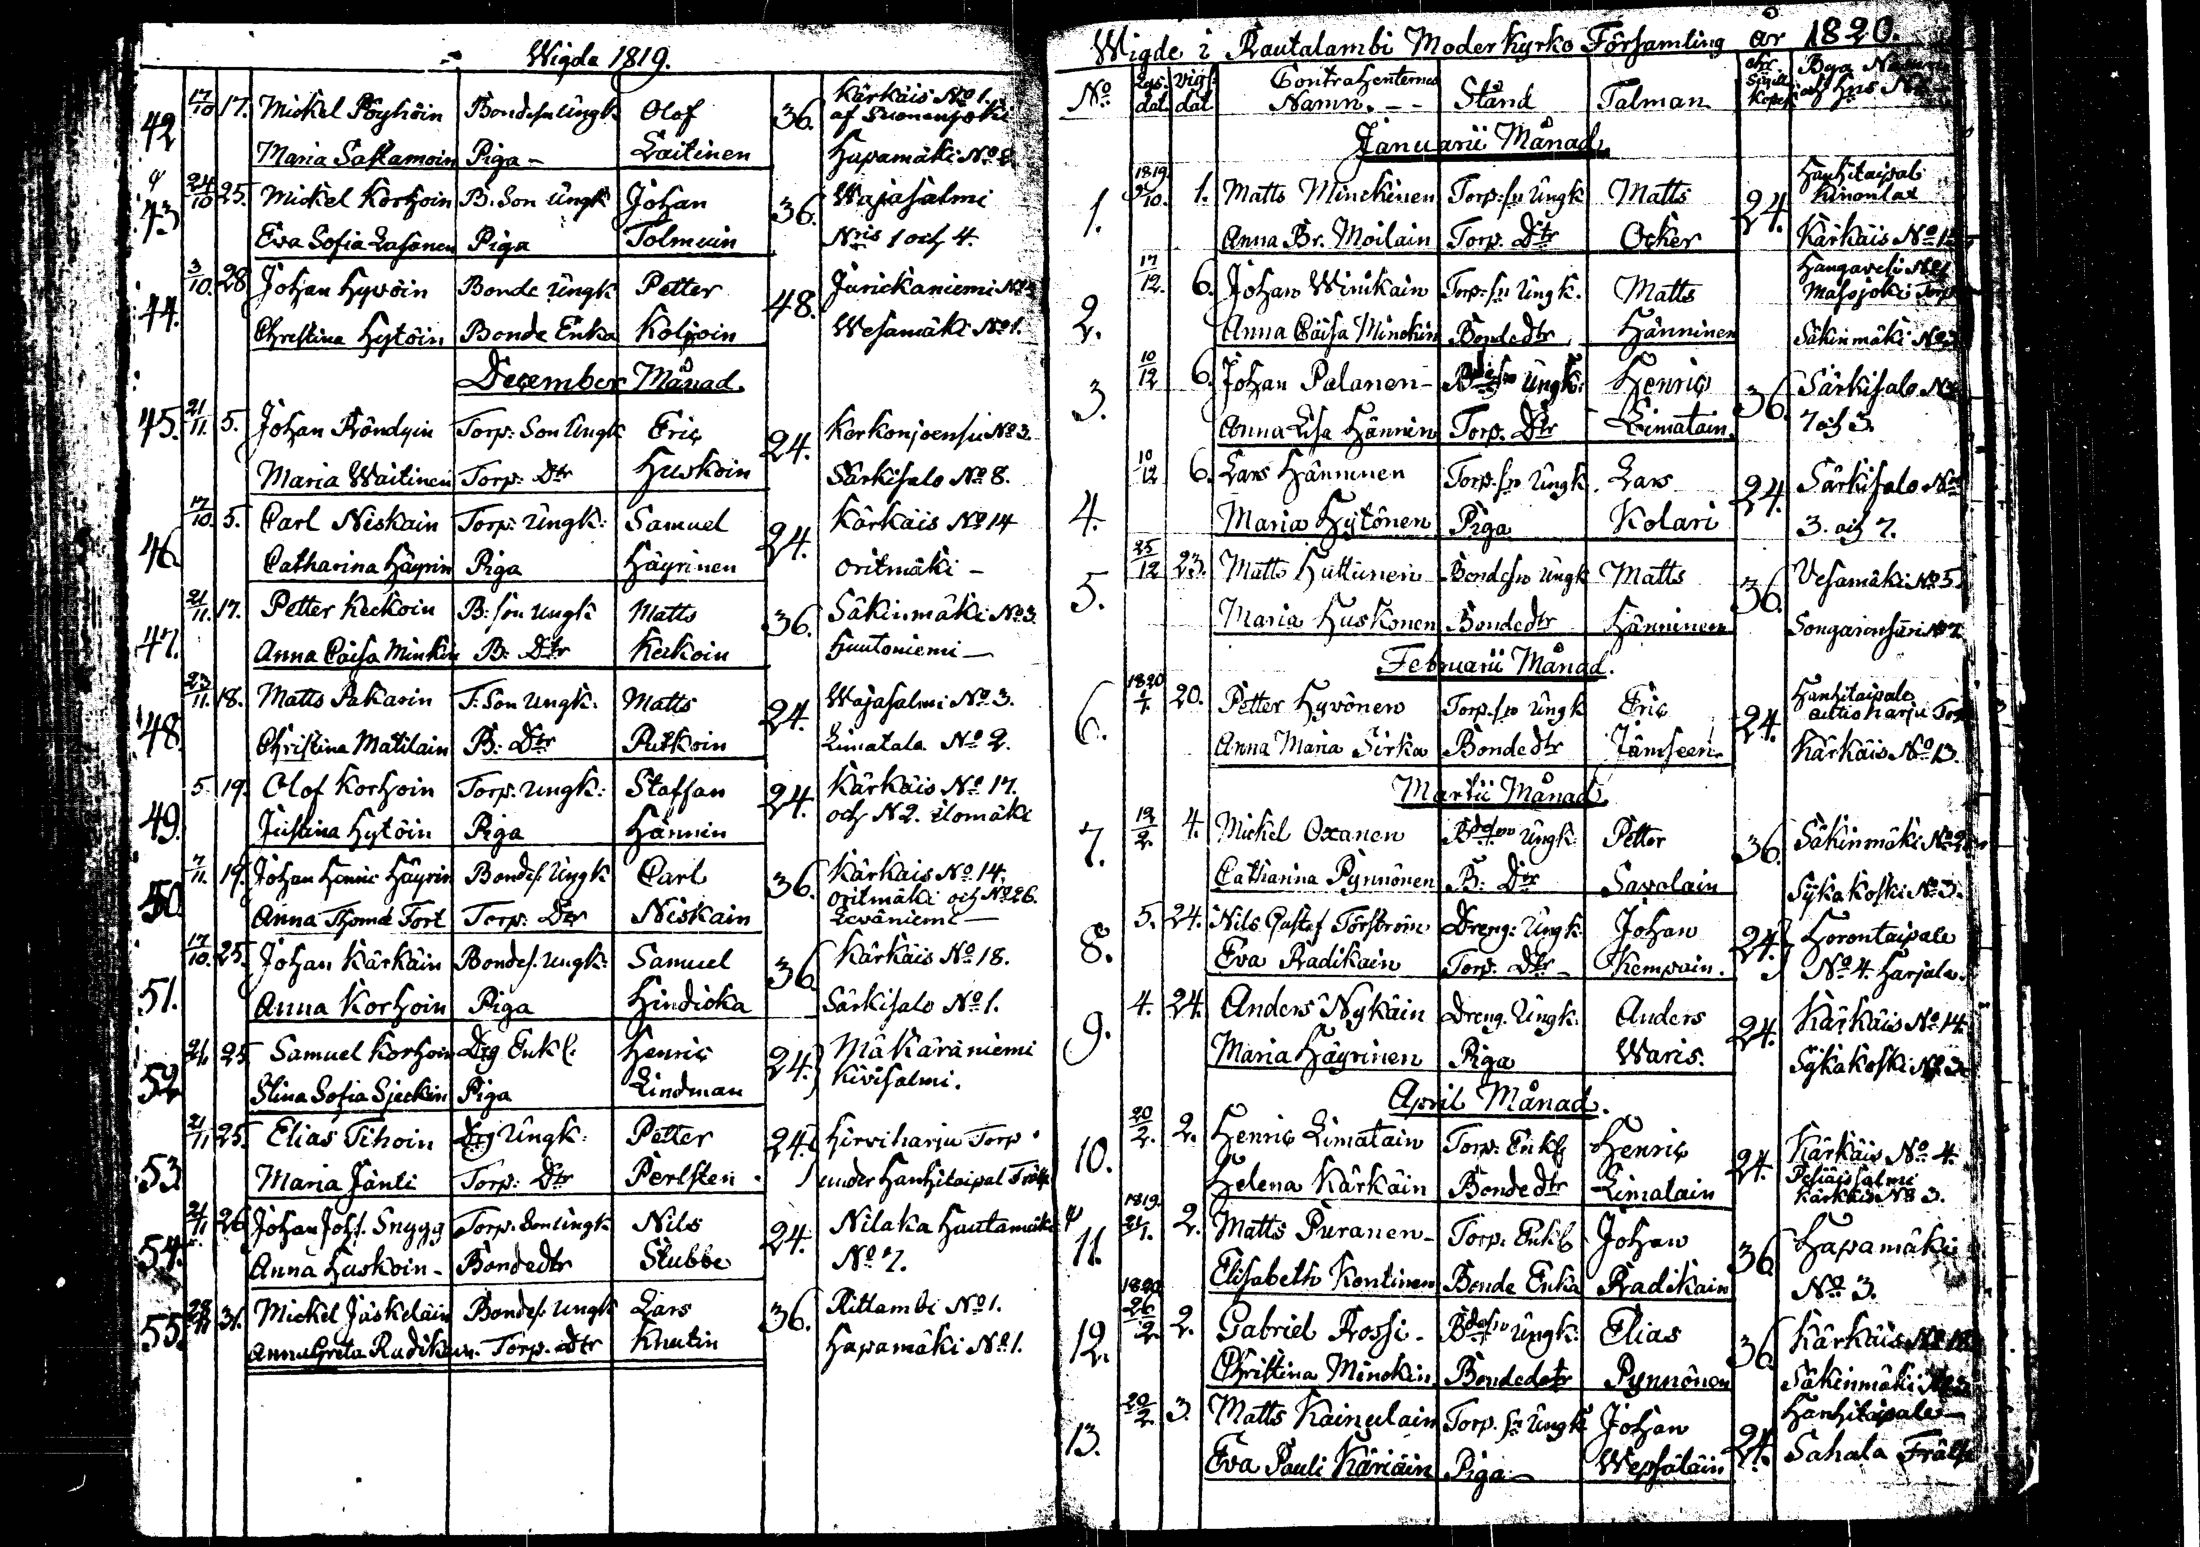 Wigda 1819.
42 17/10 17. Mickel Pöyhöin Bondeson Ungk Olof 36. Kärkäis No 1.
af Suonenjoki
Maria Satlamoin Piga - Laitinen Hapamäki No 8.
43 24/10 25. Mickel Korhoin B. Son Ungk Johan 36. Wajasalmi
Eva Sofia Lasonen Piga Tolmuin Nris 1 och 4.
44. 3/10. 28 Johan Hyvöin Bonde Ungk Petter 48. Jurickaniemi No
Christina Hytöin Bonde Enka Koljoin Wesamäki No 1.
December Månad.
45. 21/11. 5. Johan Pöndyin Torp: Son Ungk Eric 24. Korkonjoensu No 3.
Maria Waitinen Torp: Dtr Huskoin Särkisalo No 8.
46. 17/10. 5. Carl Niskain Torp: Ungk: Samuel 24. Kärkäis No 14
Catharina Häyrin Piga Häyrinen oritmäki -
47. 21/11. 17. Petter Keckoin B: son Ungk Matts 36. Säkinmäki No 3.
Anna Caisa Minkin B: Dtr Keckoin Huutoniemi -
48 23/11. 18. Matts Pakarin T: Son Ungk. Matts 24. Wajasalmi No 3.
Christina Matilain B: Dtr Putkoin Limatala No 2.
49. 5. 19. Olof Korhoin Torp. Ungk: Staffan 24. Kärkäis No 17.
och N 2. ilomäki
Justina Hytöin Piga Hännin
50 7/11. 19. Johan Henric Häyrin Bondes. Ungk Carl 36. Kärkäis No 14.
oritmäki och No 26.
Anna Thomd Tort Torp: Dtr Niskain Leväniemi -
51. 17/10. 25. Johan Kärkäin Bondes. Ungk: Samuel 36 Kärkäis No 18.
Anna Korhoin Piga Hindicka Särkisalo No 1.
52 21/11 25 Samuel Korhoin Drg Enkl. Henric 24. Mäkäräniemi
Stina Sofia Sjeckin Piga Lindman Kivisalmi.
53 21/11 25. Elias Tihoin Drg Ungk: Petter 24. Hirviharju Torp
Maria Jänti Torp: Dtr Perlsten. under Hanhitaipal Frälse
54. 21/11 26 Johan Johs. Snygg Torp. Son Ungk Nils 24. Nilaka Hautamäki
Anna Huskoin - Bondedtr Stubbe No 7.
55. 28/11 31. Mickel Jäskeläin Bondes. Ungk Lars 36. Rittambi No 1.
Anna Greta Radikain. Torp. dtr Knutin Hapamäki No 1.
Wigde i Rautalambi Moder Kyrko Församling år 1820.
No Lys. dat vigs. dat Contrahenternes Namn. - - Stånd Talman Sigill Kopek Bya Namn och Hus No
Januarii Månad.
1. 1819 9/10. 1. Matts Minckinen Torp: sn Ungk Matts 24. Hanhitaipal
Kinonlax
Anna Br. Moilain Torp. Dtr Ocker Kärkäis No 12
2. 17/12. 6. Johan Winikain Torp: sn Ungk. Matts Hangavesi No 1
Massjoki Torp
Anna Caisa Minckin Bondedtr Hänninen Säkinmäki No 3
3. 10/12 6. Johan Palanen - Bdeson Ungk: Henric 36. Särkisalo No
Anna Lisa Hännin Torp. Dtr Limatain. 7 och 3.
4. 10/12 6. Lars Hänninen Torp. sn Ungk. Lars 24. Särkisalo No
Maria Hytönen Piga Kolari 3. och 7.
5. 25/12 23. Matts Huttunen Bondeson Ungk Matts 36. Vesamäki No 5.
Maria Huskonen Bondedtr Hänninen Songarinsari No 7.
Februarii Månad.
6. 1820 20. Petter Hyvönen Torp. sn Ungk Eric 24. Hanhitaipale
autioharju Torp
Anna Maria Sirka Bondedtr Jämseen. Kärkäis No 13.
Martii Månad.
7. 12/2. 4. Mickel Oxanen Bdeson Ungk: Petter 36. Säkinmäki No 2
Catharina Pynnönen B: Dtr Savolain Sykäkoski No 3.
8. 5. 24. Nils Gustaf Törström Dreng: Ungk. Johan 24. Horontaipale
Eva Radikain Torp. Dtr - Kempain. No 4. Harjala.
9. 4. 24. Anders Nykäin Dreng. Ungk. Anders 24. Kärkäis No 14.
Maria Häyrinen Piga Waris. Sykäkoski No 3.
April Månad.
10. 20/2. 2. Henric Limatain Torp: Enkl Henric 24. Kärkäis No 4.
Pesiäissalmi
Helena Kärkäin Bondedtr Limatain Kärkäis No 3.
11. 1819. 21/1. 2. Matts Puranen - Torp. Enkl Johan 36. Hapamäki
Elisabeth Kontinen Bonde Enka Radikain No 3.
12. 1820 26/2. 2. Gabriel Rossi - Bdeson Ungk: Elias 36 Kärkäis No 18
Christina Minckin. Bondedotr Pynnönen Säkinmäki No 3
13. 20/2. 3. Matts Kainulain Torp. sn Ungk Johan 24. Hanhitaipale -
Eva Pauli Käriäin Piga - Wepsäläin Sahala Frälse